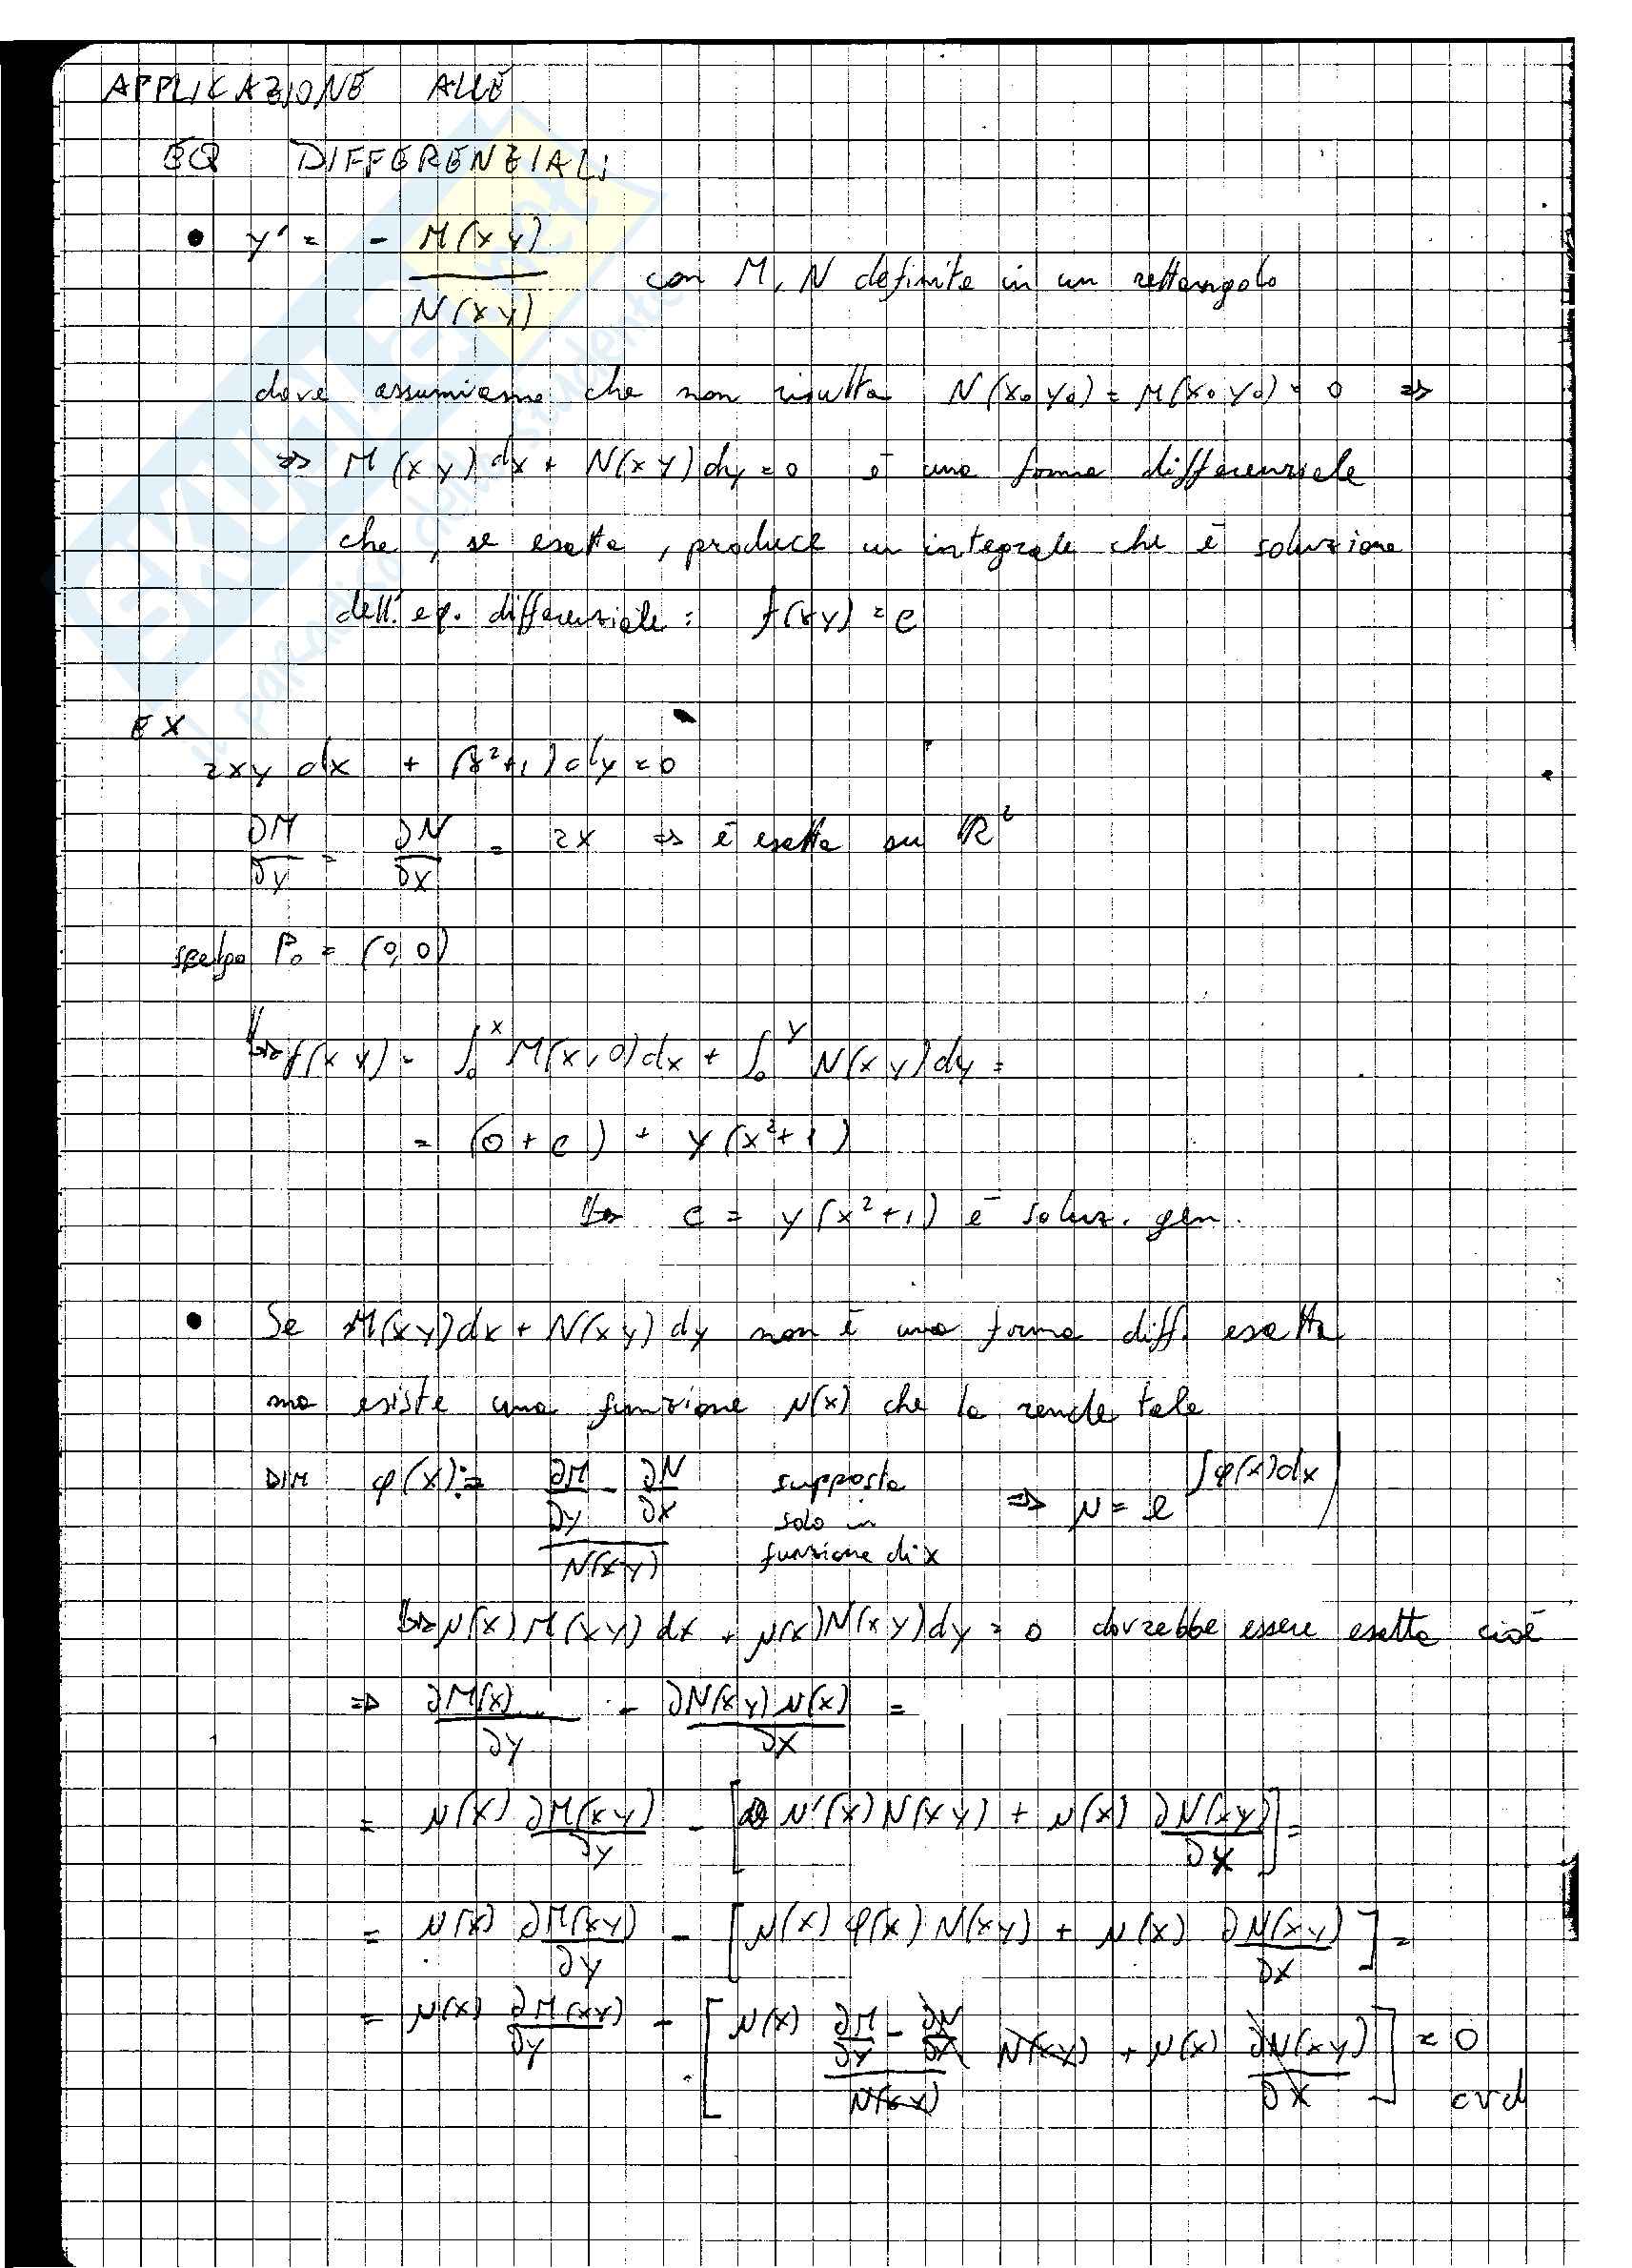 APPLICAZIONE ALLE
EQ DIFFERENZIALI
• y' = - M(x y) / N(x y) con M, N definite in un rettangolo
dove assumiamo che non risulta N(x₀ y₀) = M(x₀ y₀) = 0 ⇒
⇒ M(x y) dx + N(x y) dy = 0 è una forma differenziale
che, se esatta, produce un integrale che è soluzione
dell'eq. differenziale: f(x y) = c
EX
2xy dx + (x²+1) dy = 0
∂M/∂y = ∂N/∂x = 2x ⇒ è esatta su ℝ²
scelgo P₀ = (0,0)
↳ f(x y) = ∫₀ˣ M(x,0) dx + ∫₀ʸ N(x y) dy =
= (0 + c) + y(x²+1)
↳ c = y(x²+1) è soluz. gen.
• Se M(x y) dx + N(x y) dy non è una forma diff. esatta
ma esiste una funzione μ(x) che la rende tale
DIM φ(x) := (∂M/∂y - ∂N/∂x) / N(x y) supposta solo in funzione di x ⇒ μ = e^(∫φ(x)dx)
↳ μ(x) M(x y) dx + μ(x) N(x y) dy = 0 dovrebbe essere esatta cioè
⇒ ∂M(x).../∂y - ∂N(x y) μ(x)/∂x =
= μ(x) ∂M(x y)/∂y - [μ'(x) N(x y) + μ(x) ∂N(x y)/∂x] =
= μ(x) ∂M(x y)/∂y - [μ(x) φ(x) N(x y) + μ(x) ∂N(x y)/∂x] =
= μ(x) ∂M(x y)/∂y - [μ(x) (∂M/∂y - ∂N/∂x)/N(x y) N(x y) + μ(x) ∂N(x y)/∂x] = 0
cvd